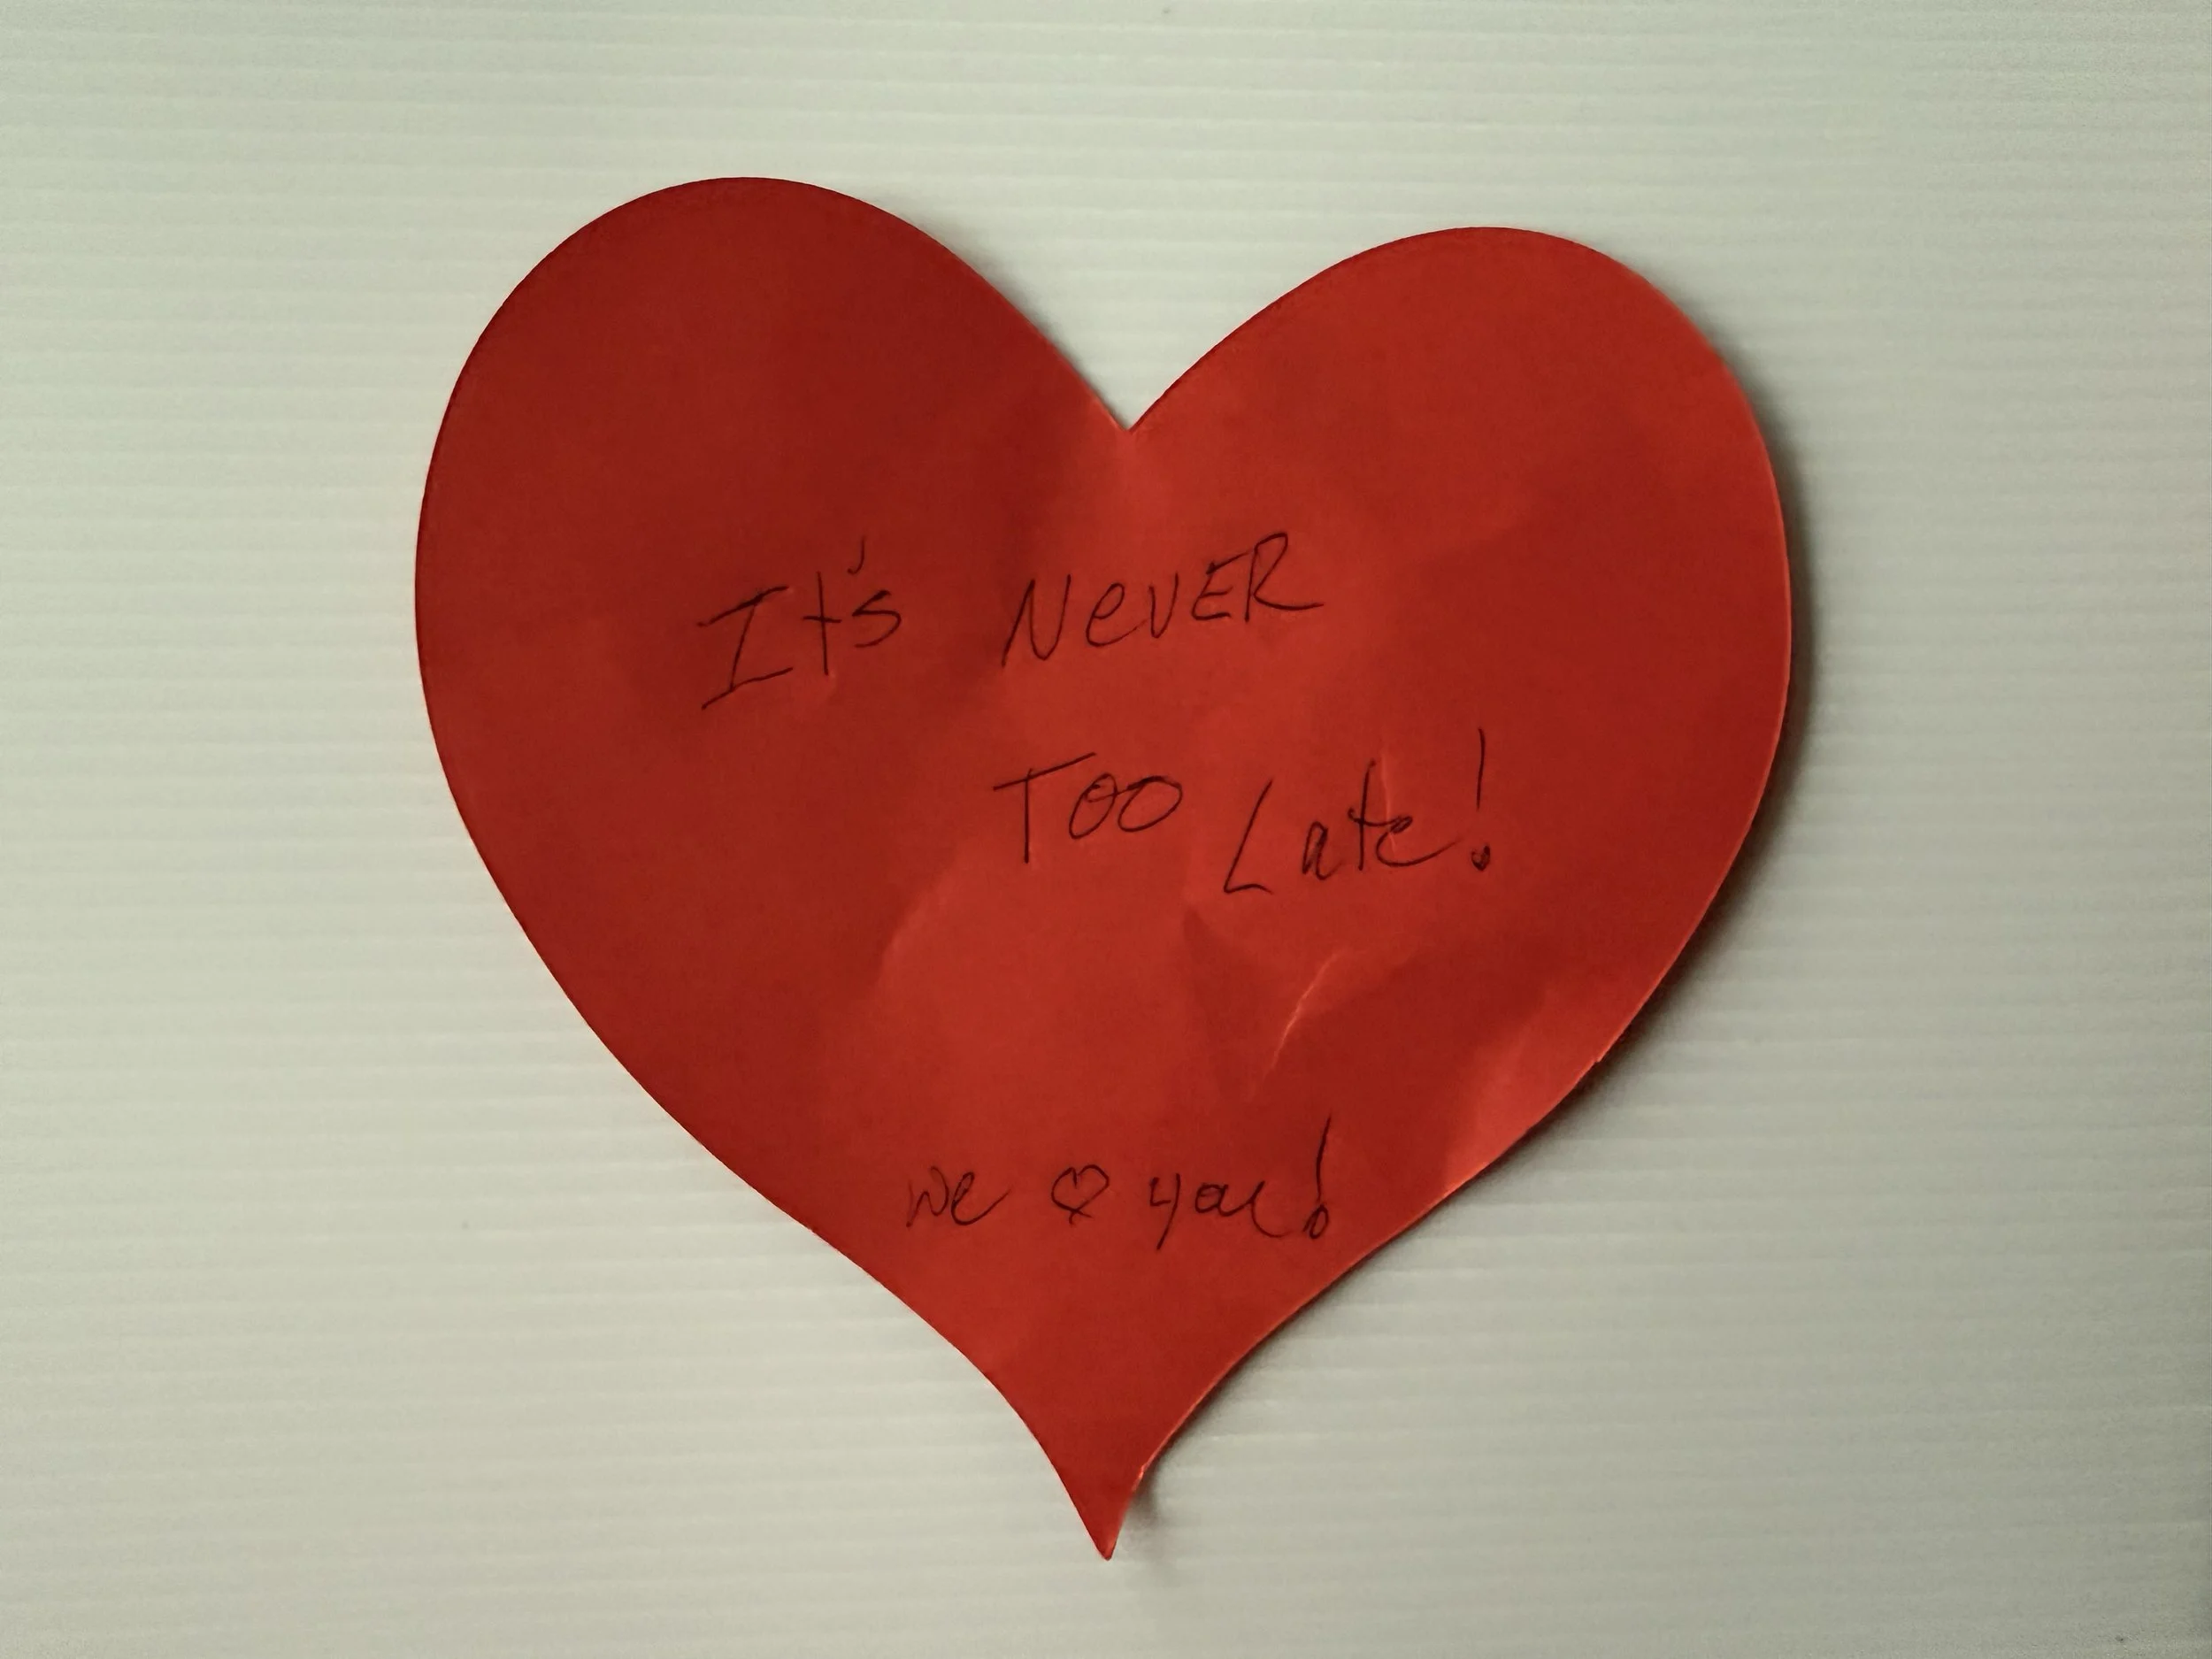 It's NeveR
Too Late!
we ♡ you!